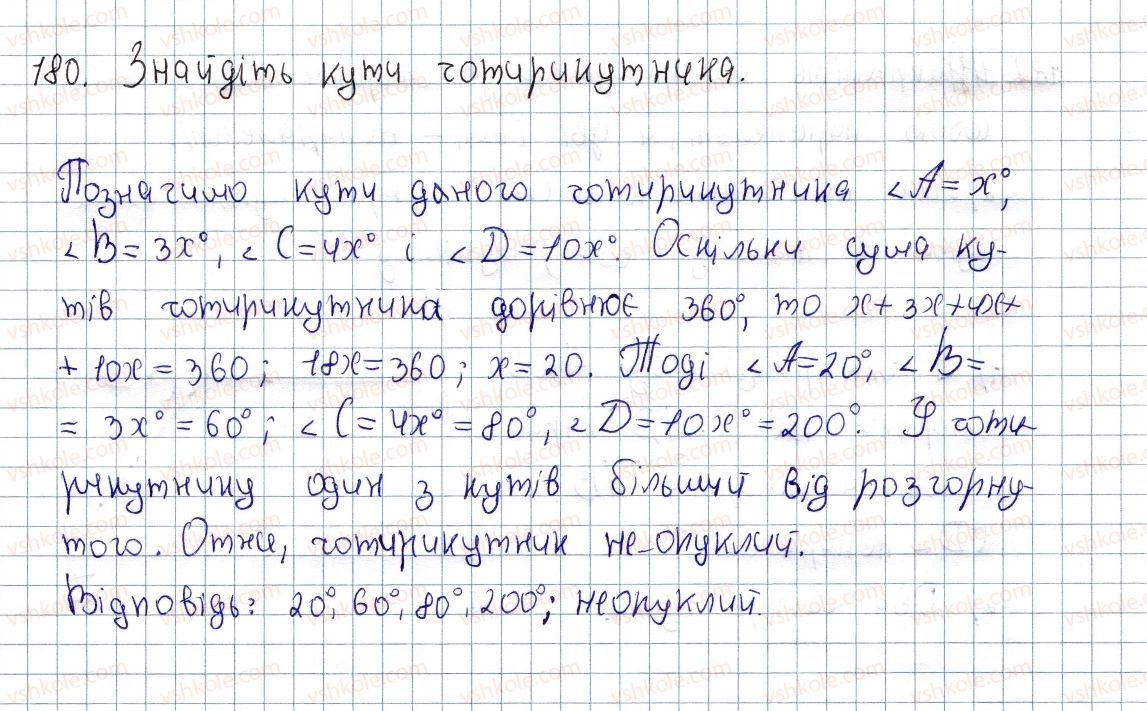 180. Знайдіть кути чотирикутника.
Позначимо кути даного чотирикутника ∠A = x°,
∠B = 3x°, ∠C = 4x° і ∠D = 10x°. Оскільки сума ку-
тів чотирикутника дорівнює 360°, то x + 3x + 4x +
+ 10x = 360; 18x = 360; x = 20. Тоді ∠A = 20°, ∠B =
= 3x° = 60°; ∠C = 4x° = 80°, ∠D = 10x° = 200°. У чоти-
рикутнику один з кутів більший від розгорну-
того. Отже, чотирикутник не-опуклий.
Відповідь: 20°, 60°, 80°, 200°; неопуклий.